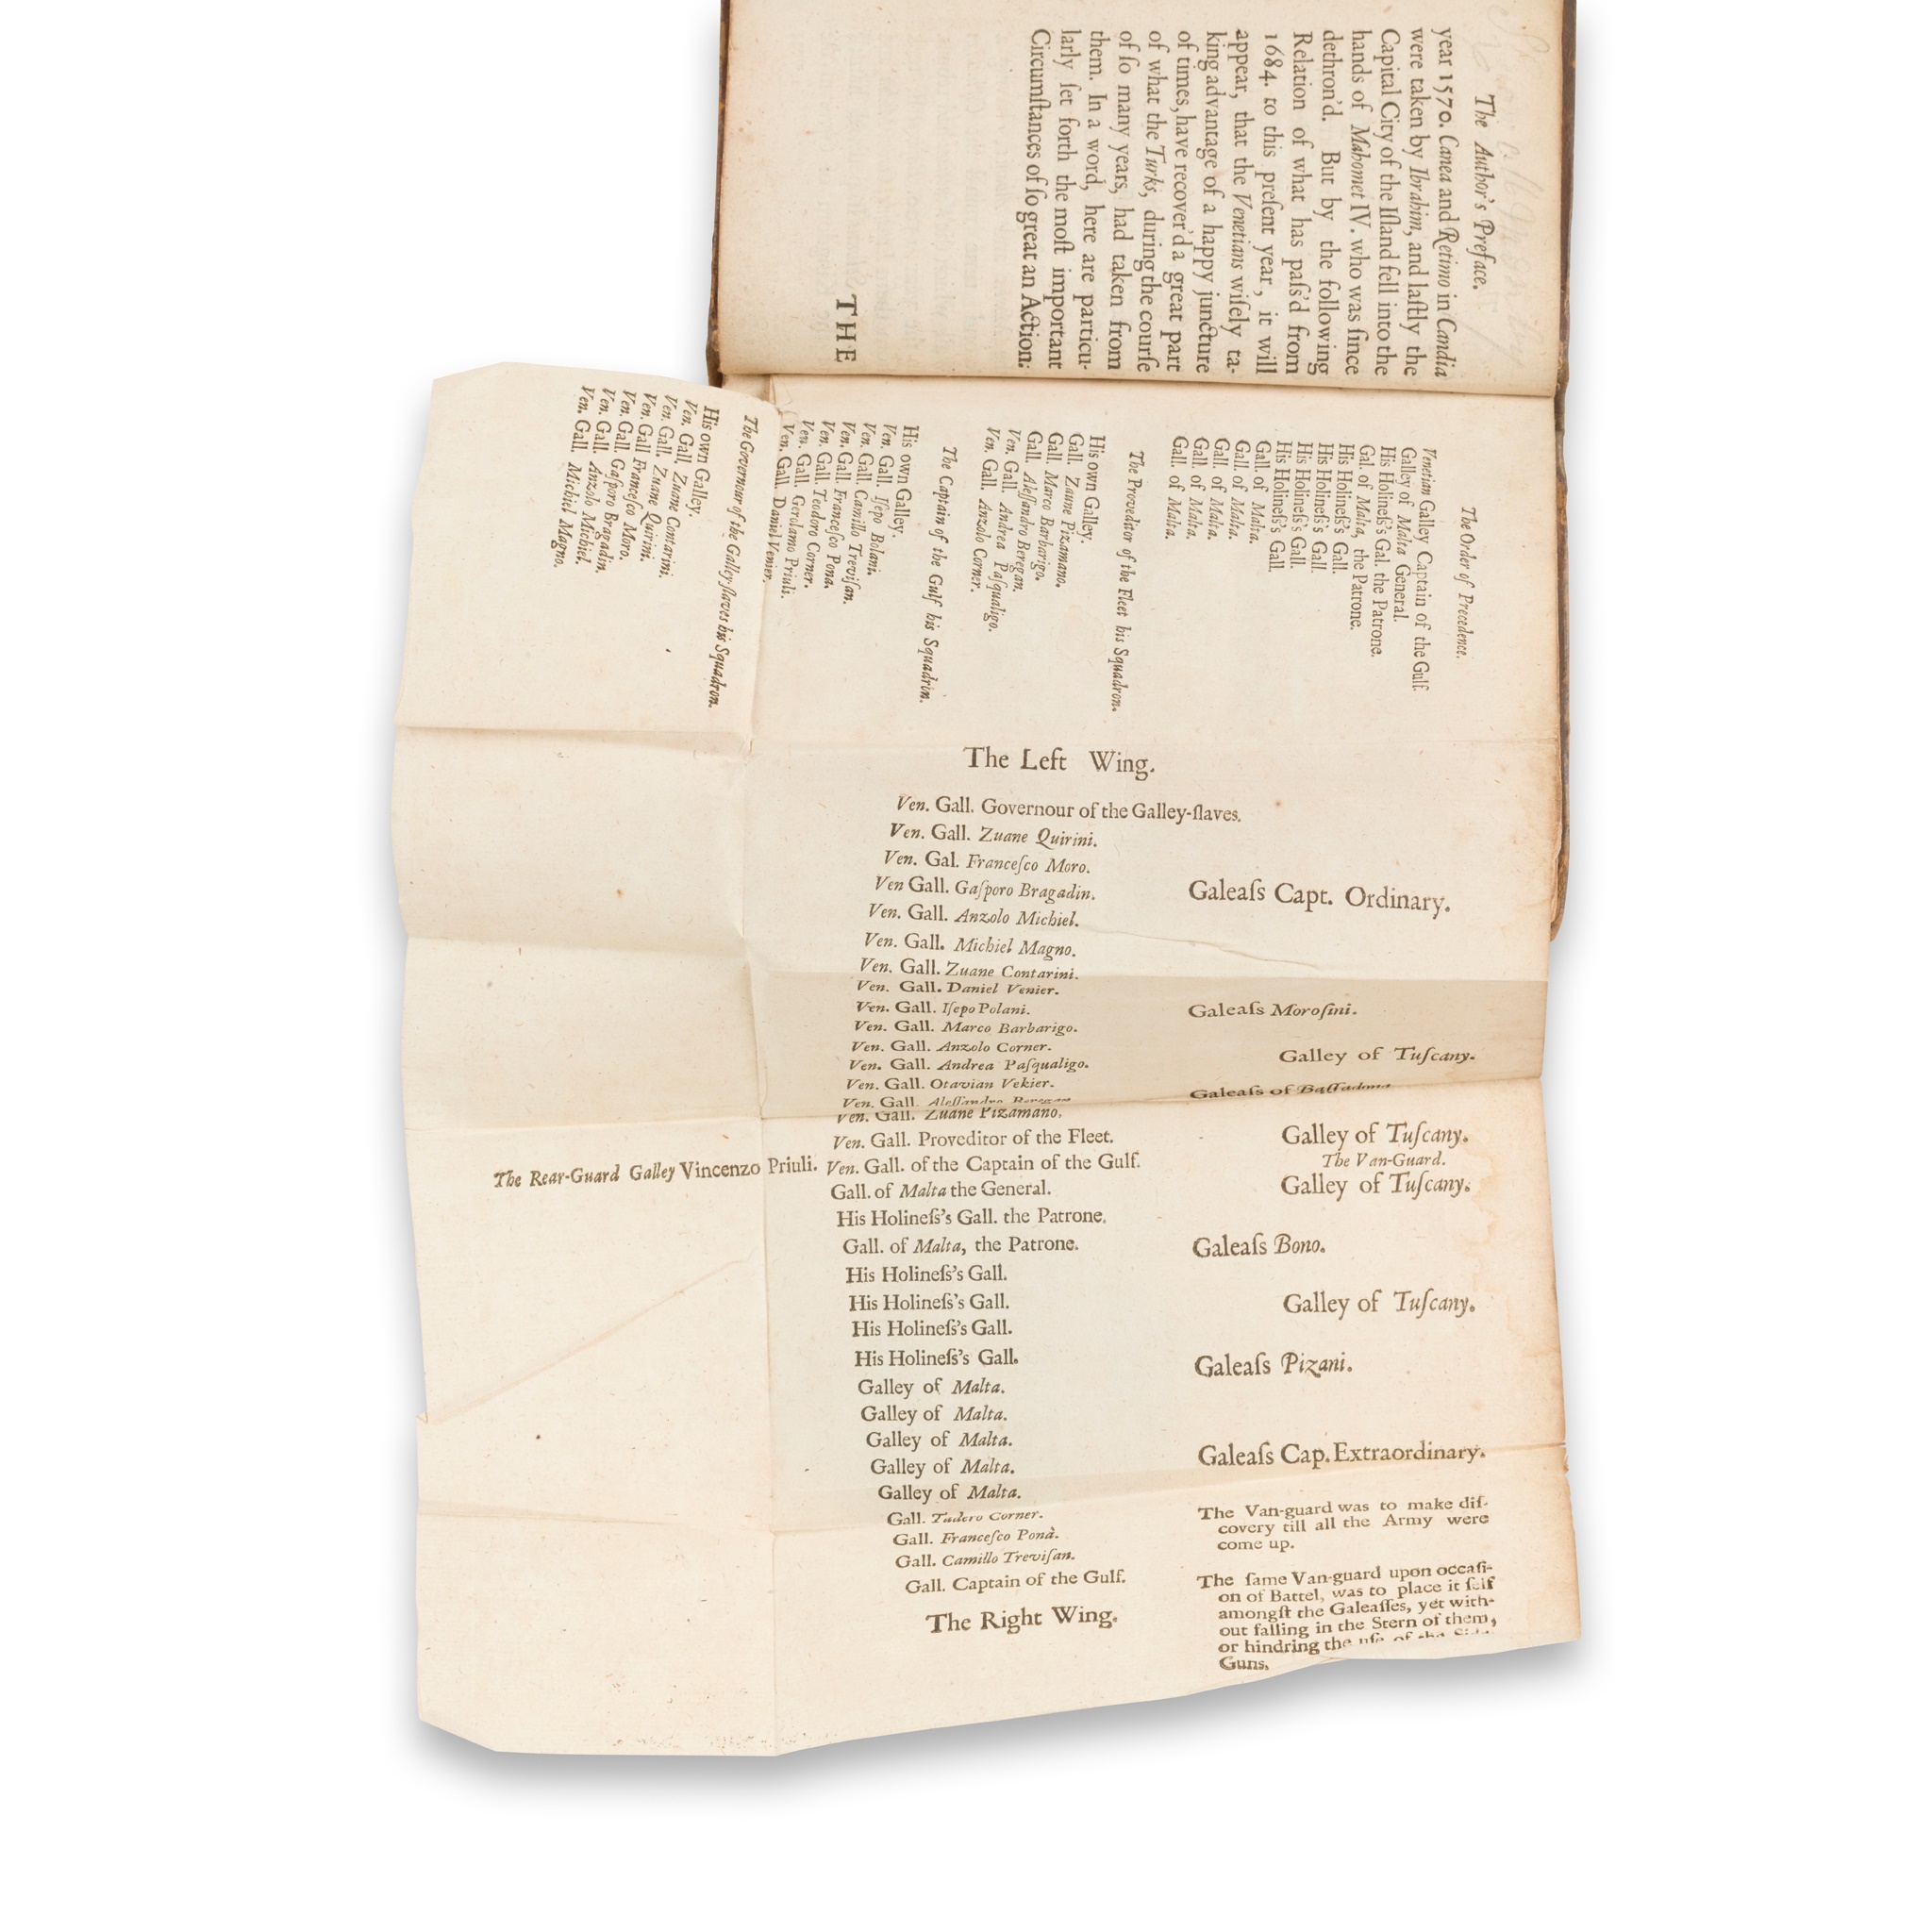 The Author's Preface.
year 1570. Canea and Retimo in Candia
were taken by Ibrahim, and laſtly the
Capital City of the Iſland fell into the
hands of Mahomet IV. who was ſince
dethron'd. But by the following
Relation of what has paſs'd from
1684. to this preſent year, it will
appear, that the Venetians wiſely ta-
king advantage of a happy juncture
of times, have recover'd a great part
of what the Turks, during the courſe
of ſo many years, had taken from
them. In a word, here are particu-
larly ſet forth the moſt important
Circumſtances of ſo great an Action:
THE
The Order of Precedence.
Venetian Galley Captain of the Gulf.
Galley of Malta General.
His Holineſs's Gal. the Patrone.
Gal. of Malta, the Patrone.
His Holineſs's Gall.
His Holineſs's Gall.
His Holineſs's Gall.
His Holineſs's Gall.
Gall. of Malta.
Gall. of Malta.
Gall. of Malta.
Gall. of Malta.
Gall. of Malta.
The Proveditor of the Fleet his Squadron.
His own Galley.
Gall. Zaune Pizamano.
Gall. Marco Barbarigo.
Gall. Aleſſandro Beregan.
Ven. Gall. Andrea Paſqualigo.
Ven. Gall. Anzolo Corner.
The Captain of the Gulf his Squadrin.
His own Galley.
Ven. Gall. Iſepo Bolani.
Ven. Gall. Camillo Treviſan.
Ven. Gall. Franceſco Pona.
Ven. Gall. Teodoro Corner.
Ven. Gall. Gerolamo Priuli.
Ven. Gall. Daniel Venier.
The Governour of the Galley ſlaves his Squadron.
His own Galley.
Ven. Gall. Zuane Contarini.
Ven. Gall. Zuane Quirini.
Ven. Gall Franceſco Moro.
Ven. Gall. Gaſporo Bragadin.
Ven. Gall. Anzolo Michiel.
Ven. Gall. Michiel Magno.
The Left Wing.
Ven. Gall. Governour of the Galley-ſlaves.
Ven. Gall. Zuane Quirini.
Ven. Gal. Franceſco Moro.
Ven Gall. Gaſporo Bragadin.
Ven. Gall. Anzolo Michiel.
Ven. Gall. Michiel Magno.
Ven. Gall. Zuane Contarini.
Ven. Gall. Daniel Venier.
Ven. Gall. Iſepo Polani.
Ven. Gall. Marco Barbarigo.
Ven. Gall. Anzolo Corner.
Ven. Gall. Andrea Paſqualigo.
Ven. Gall. Otavian Vekier.
Ven. Gall. Aleſſandro Beregan
Ven. Gall. Zuane Pizamano.
Ven. Gall. Proveditor of the Fleet.
The Rear-Guard Galley Vincenzo Priuli. Ven. Gall. of the Captain of the Gulf.
Gall. of Malta the General.
His Holineſs's Gall. the Patrone.
Gall. of Malta, the Patrone.
His Holineſs's Gall.
His Holineſs's Gall.
His Holineſs's Gall.
His Holineſs's Gall.
Galley of Malta.
Galley of Malta.
Galley of Malta.
Galley of Malta.
Galley of Malta.
Gall. Tudero Corner.
Gall. Franceſco Ponà.
Gall. Camillo Treviſan.
Gall. Captain of the Gulf.
The Right Wing.
Galeaſs Capt. Ordinary.
Galeaſs Moroſini.
Galley of Tuſcany.
Galeaſs of Baſſadona
Galley of Tuſcany.
The Van-Guard.
Galley of Tuſcany.
Galeaſs Bono.
Galley of Tuſcany.
Galeaſs Pizani.
Galeaſs Cap. Extraordinary.
The Van-guard was to make diſ-
covery till all the Army were
come up.
The ſame Van-guard upon occaſi-
on of Battel, was to place it ſelf
amongſt the Galeaſſes, yet with-
out falling in the Stern of them,
or hindring the uſe of the Side
Guns.